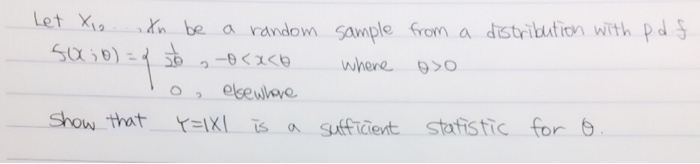 Let X₁, ..., Xn be a random sample from a distribution with pdf
f(x;θ) = { 1/2θ , -θ<x<θ where θ>0
0, elsewhere
Show that Y=|X| is a sufficient statistic for θ.